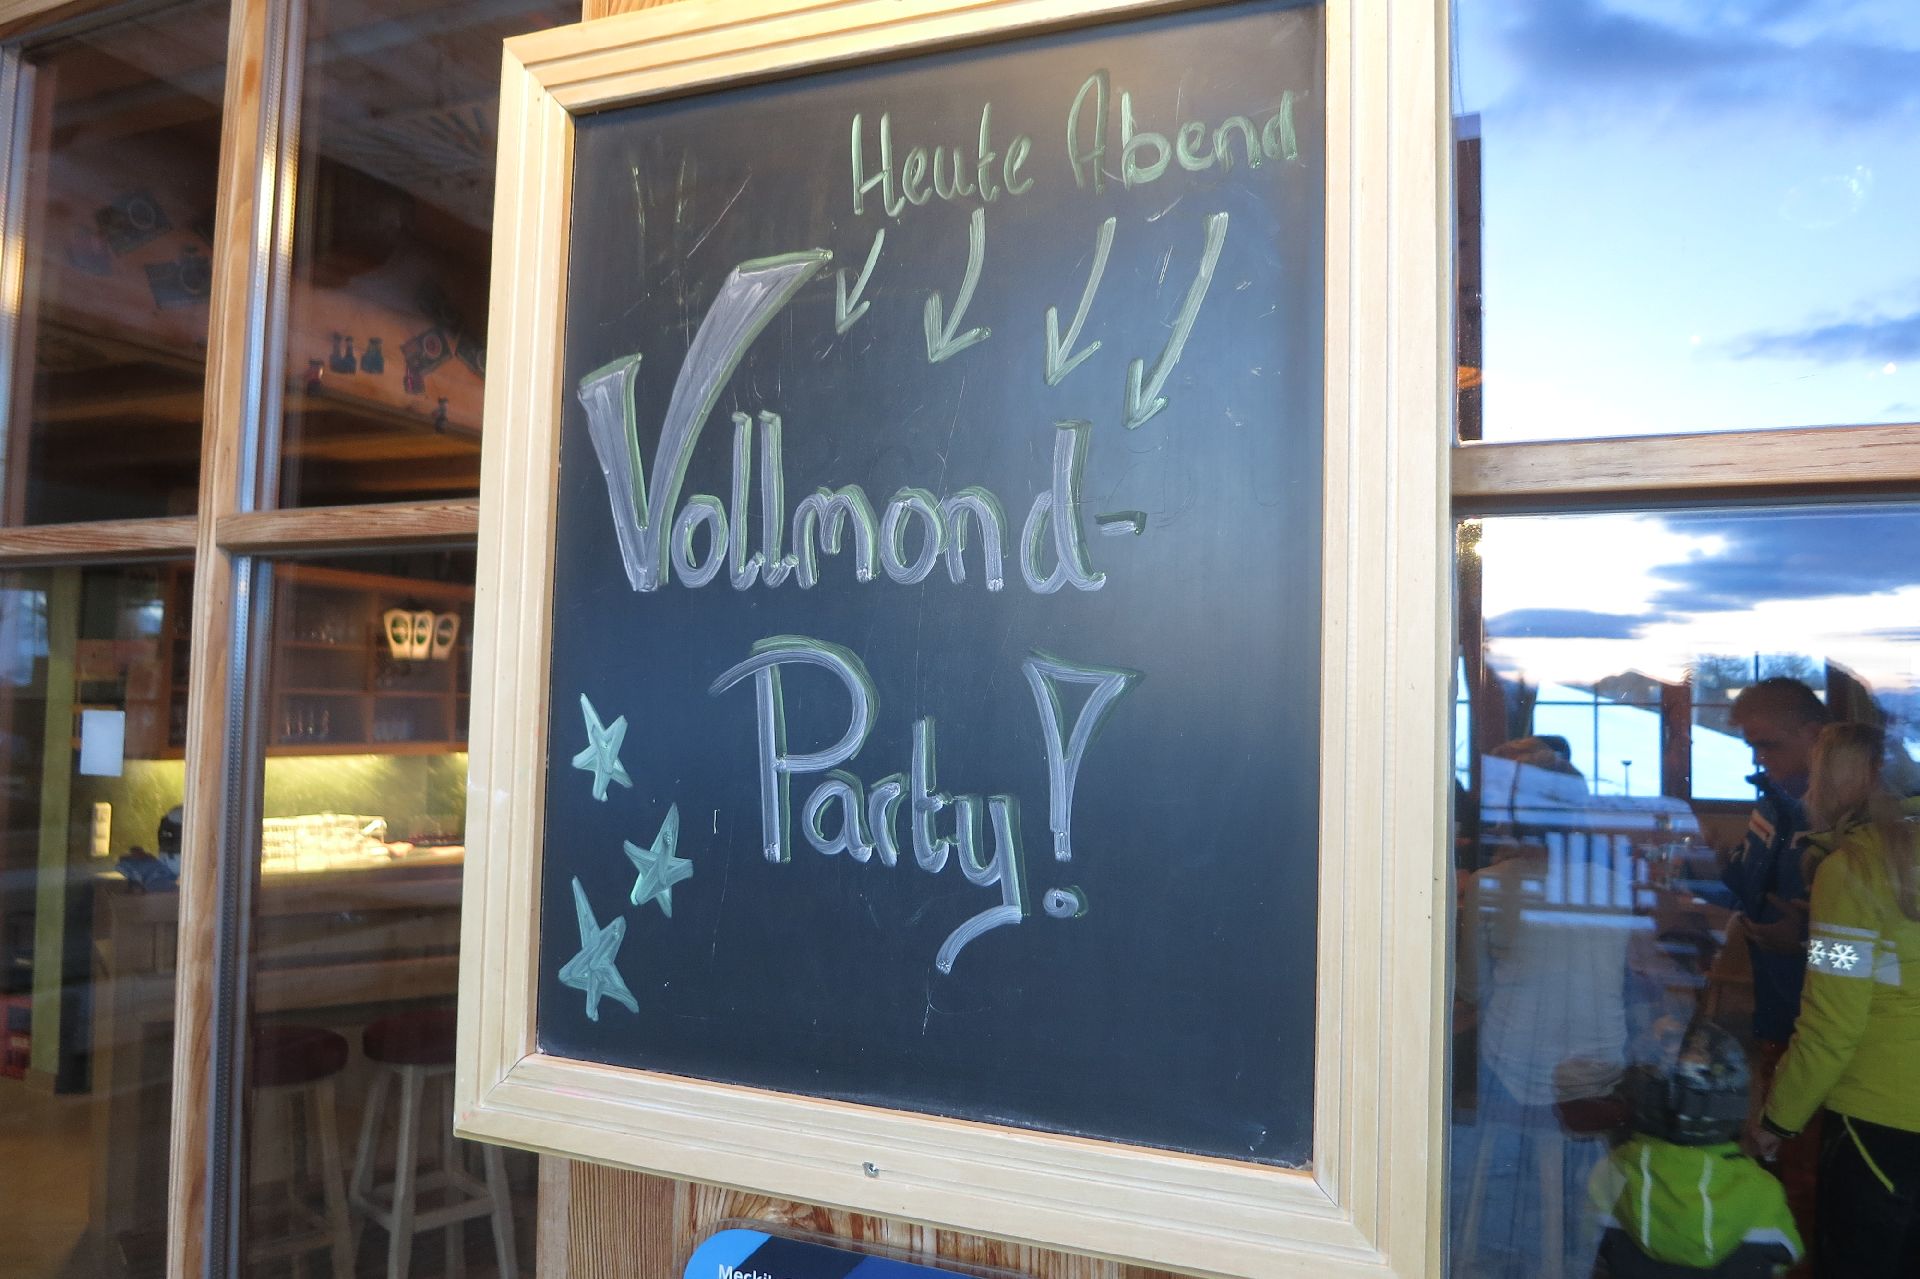 Heute Abend
Vollmond-
Party!